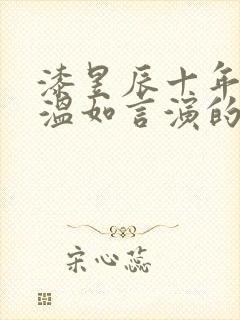 漆昱辰十年
温如言演的
宋心蕊